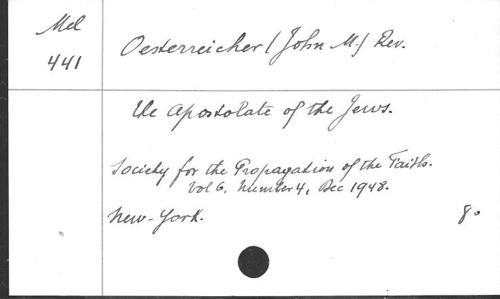 Mel
441
Oesterreicher (John M.) Rev.
the Apostolate of the Jews.
Society for the Propagation of the Faith.
Vol 6, Number 4, Dec 1948.
New-York.
8°